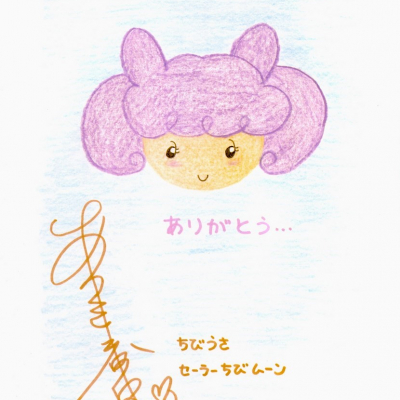 ありがとう…
ちびうさ
セーラーちびムーン